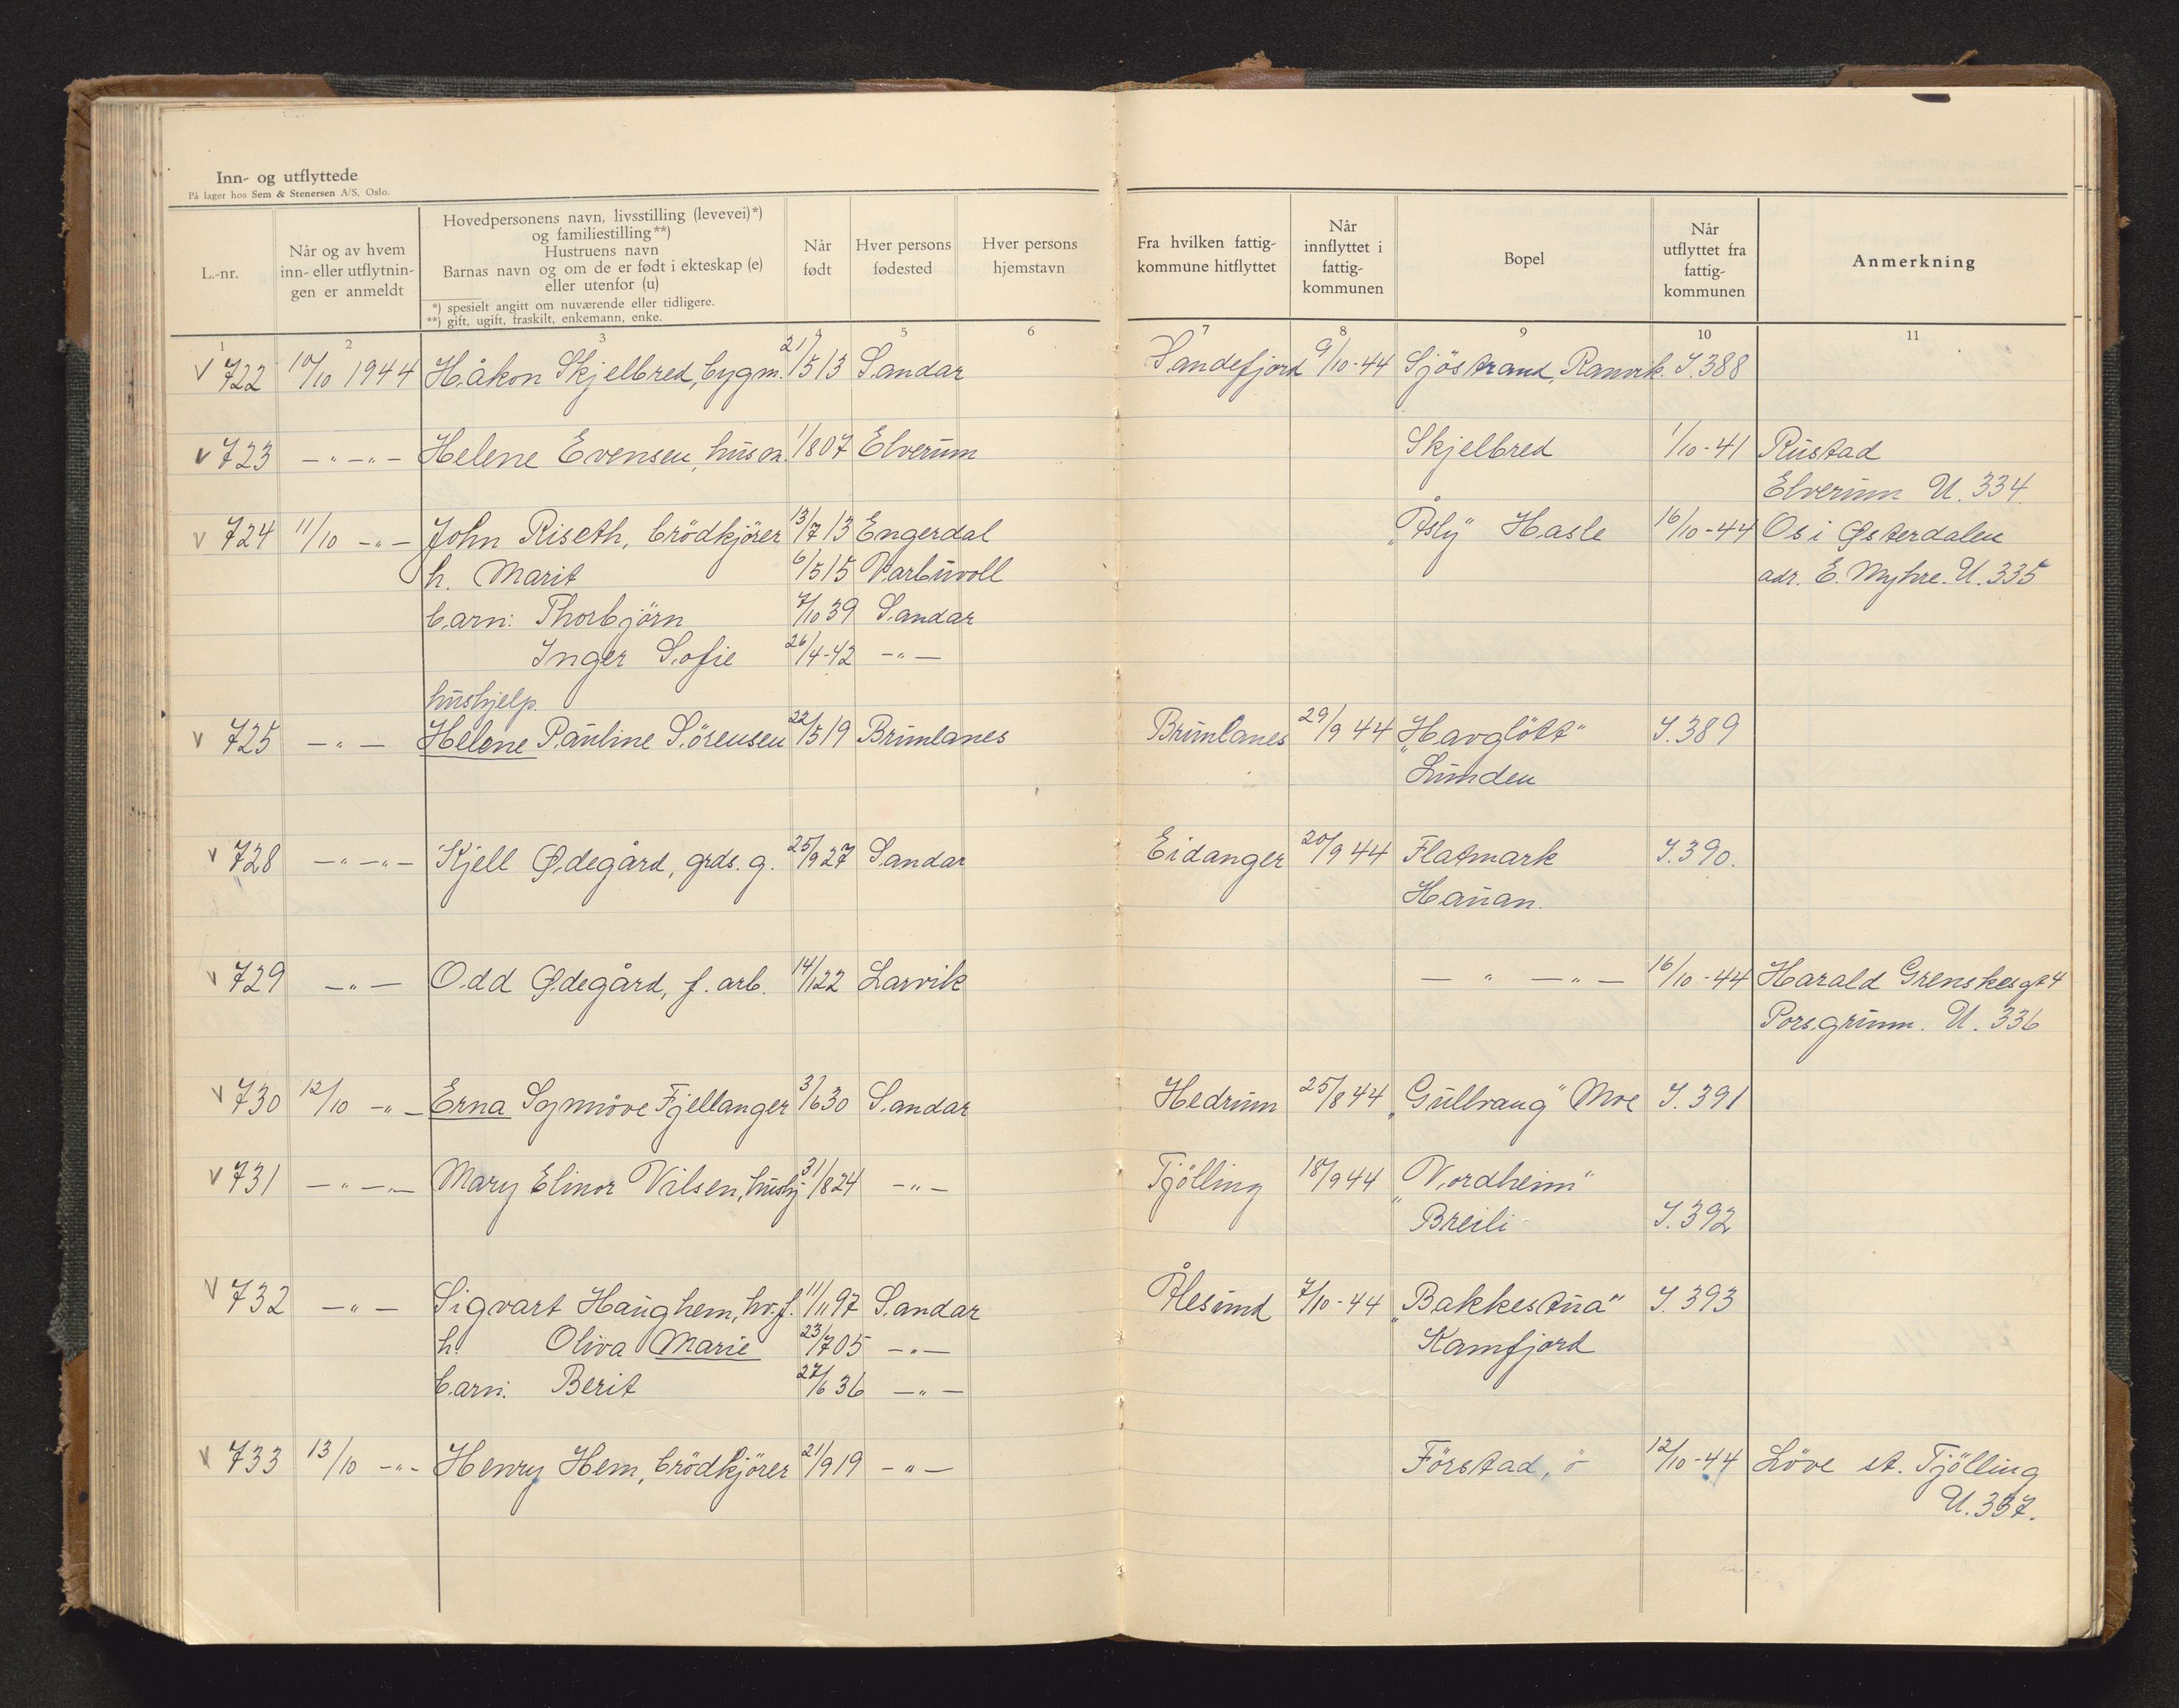 Inn- og utflyttede
På lager hos Sem & Stenersen A/S, Oslo.
L.-nr.
Når og av hvem
inn- eller utflytnin-
gen er anmeldt
Hovedpersonens navn, livsstilling (levevei)*)
og familiestilling**)
Hustruens navn
Barnas navn og om de er født i ekteskap (e)
eller utenfor (u)
*) spesielt angitt om nuværende eller tidligere.
**) gift, ugift, fraskilt, enkemann, enke.
Når
født
Hver persons
fødested
Hver persons
hjemstavn
Fra hvilken fattig-
kommune hitflyttet
Når
innflyttet i
fattig-
kommunen
Bopel
Når
utflyttet fra
fattig-
kommunen
Anmerkning
1 2 3 4 5 6 7 8 9 10 11
v 722 10/10 1944 Håkon Skjelbred, bygm. 21/5 13 Sandar Sandefjord 9/10-44 Sjöstrand, Ranvik. I.388
v 723 -"-"- Helene Evensen, husm. 1/8 07 Elverum Skjelbred 1/10-41 Rustad
Elverum U. 334
v 724 11/10 -"- John Riseth, brödkjörer 13/7 13 Engerdal "Åsly" Hasle 16/10-44 Os i Østerdalen
h. Marit 6/5 15 Narbuvoll adr. E. Myhre. U. 335
barn: Thorbjörn 7/10 39 Sandar
Inger Sofie 26/4-42 -"-
hushjelp.
v 725 -"- Helene Pauline Sörensen 22/5 19 Brunlanes Brunlanes 29/9 44 "Havglött" I.389
Lunden
v 728 -"-"- Kjell Ødegård, grds. g. 25/9 27 Sandar Eidanger 20/9 44 Flatmark I.390.
Hauan.
v 729 -"- Odd Ødegård, f. arb. 14/1 22 Larvik -"-"- 16/10-44 Harald Grenskesgt 4
Porsgrunn. U. 336
v 730 12/10 -"- Erna Synnöve Fjellanger 3/6 30 Sandar Hedrum 25/8 44 "Gullvang" Moe I.391
v 731 -"-"- Mary Elinor Nilsen, hushj 31/8 24 -"- Tjölling 18/9 44 "Nordheim"
Breili I.392
v 732 -"- Sigvart Haughem, hv.f. 11/11 97 Sandar Ålesund 7/10-44 "Bakkestua" I.393
h. Oliva Marie 23/7 05 -"- Kamfjord
barn: Berit 27/6 36 -"-
v 733 13/10 -"- Henry Hem, brödkjörer 21/9 19 -"- Förstad, ö 12/10-44 Löve st. Tjölling
U. 337.